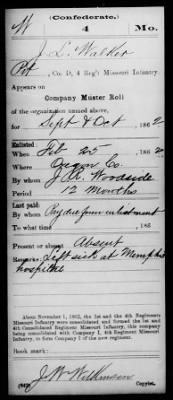 (Confederate.)
W 4 Mo.
J. L. Walker
Pvt, Co. D, 4 Reg't Missouri Infantry
Appears on
Company Muster Roll
of the organization named above,
for Sept & Oct, 1862
Enlisted:
When Feb 25, 1862
Where Oregon Co.
By whom J. R. Woodside
Period 12 Months
Last paid:
By whom Pay due from enlistment
To what time , 186
Present or absent Absent
Remarks: Left sick at Memphis
hospital
About November 1, 1862, the 1st and the 4th Regiments
Missouri Infantry were consolidated and formed the 1st and
4th Consolidated Regiment Missouri Infantry, this company
being consolidated with Company I, 4th Regiment Missouri
Infantry, to form Company I of the new regiment.
Book mark:
J W Wilkinson
(642) Copyist.